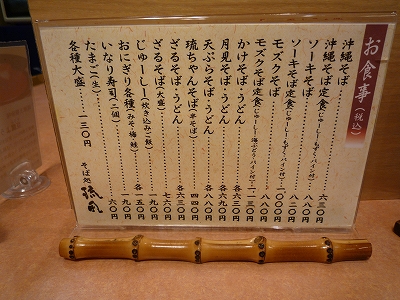 お食事(税込)
沖縄そば……六三〇円
沖縄そば定食(じゅーしー・もずく・パイン付)…八二〇円
ソーキそば……八二〇円
ソーキそば定食(じゅーしー・もずく・パイン付)…
モズクそば……八八〇円
モズクそば定食(じゅーしー・海ぶどう・パイン付)…一一三〇円
かけそば・うどん……各六三〇円
月見そば・うどん……各六九〇円
天ぷらそば・うどん……各八八〇円
琉ちゃんそば(半そば)……四四〇円
ざるそば・うどん……各六三〇円
ざるそば(大盛)……七六〇円
じゅーしー(炊き込みご飯)……一九〇円
おにぎり各種(みそ・梅・鮭)……各一五〇円
いなり寿司(二個)……一九〇円
たまご(生)……六〇円
各種大盛……一三〇円
そば処
琉風